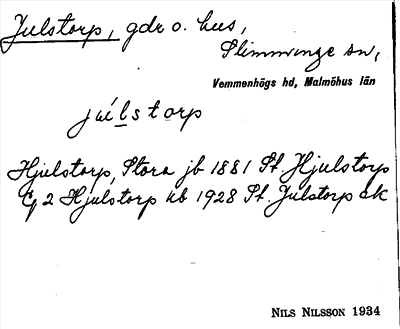 Julstorp, gdr o. hus,
Slimminge sn,
Vemmenhögs hd, Malmöhus län
júlstorp
Hjulstorp, Stora jb 1881 St. Hjulstorp
2 Hjulstorp kb 1928 St. Julstorp ek
NILS NILSSON 1934